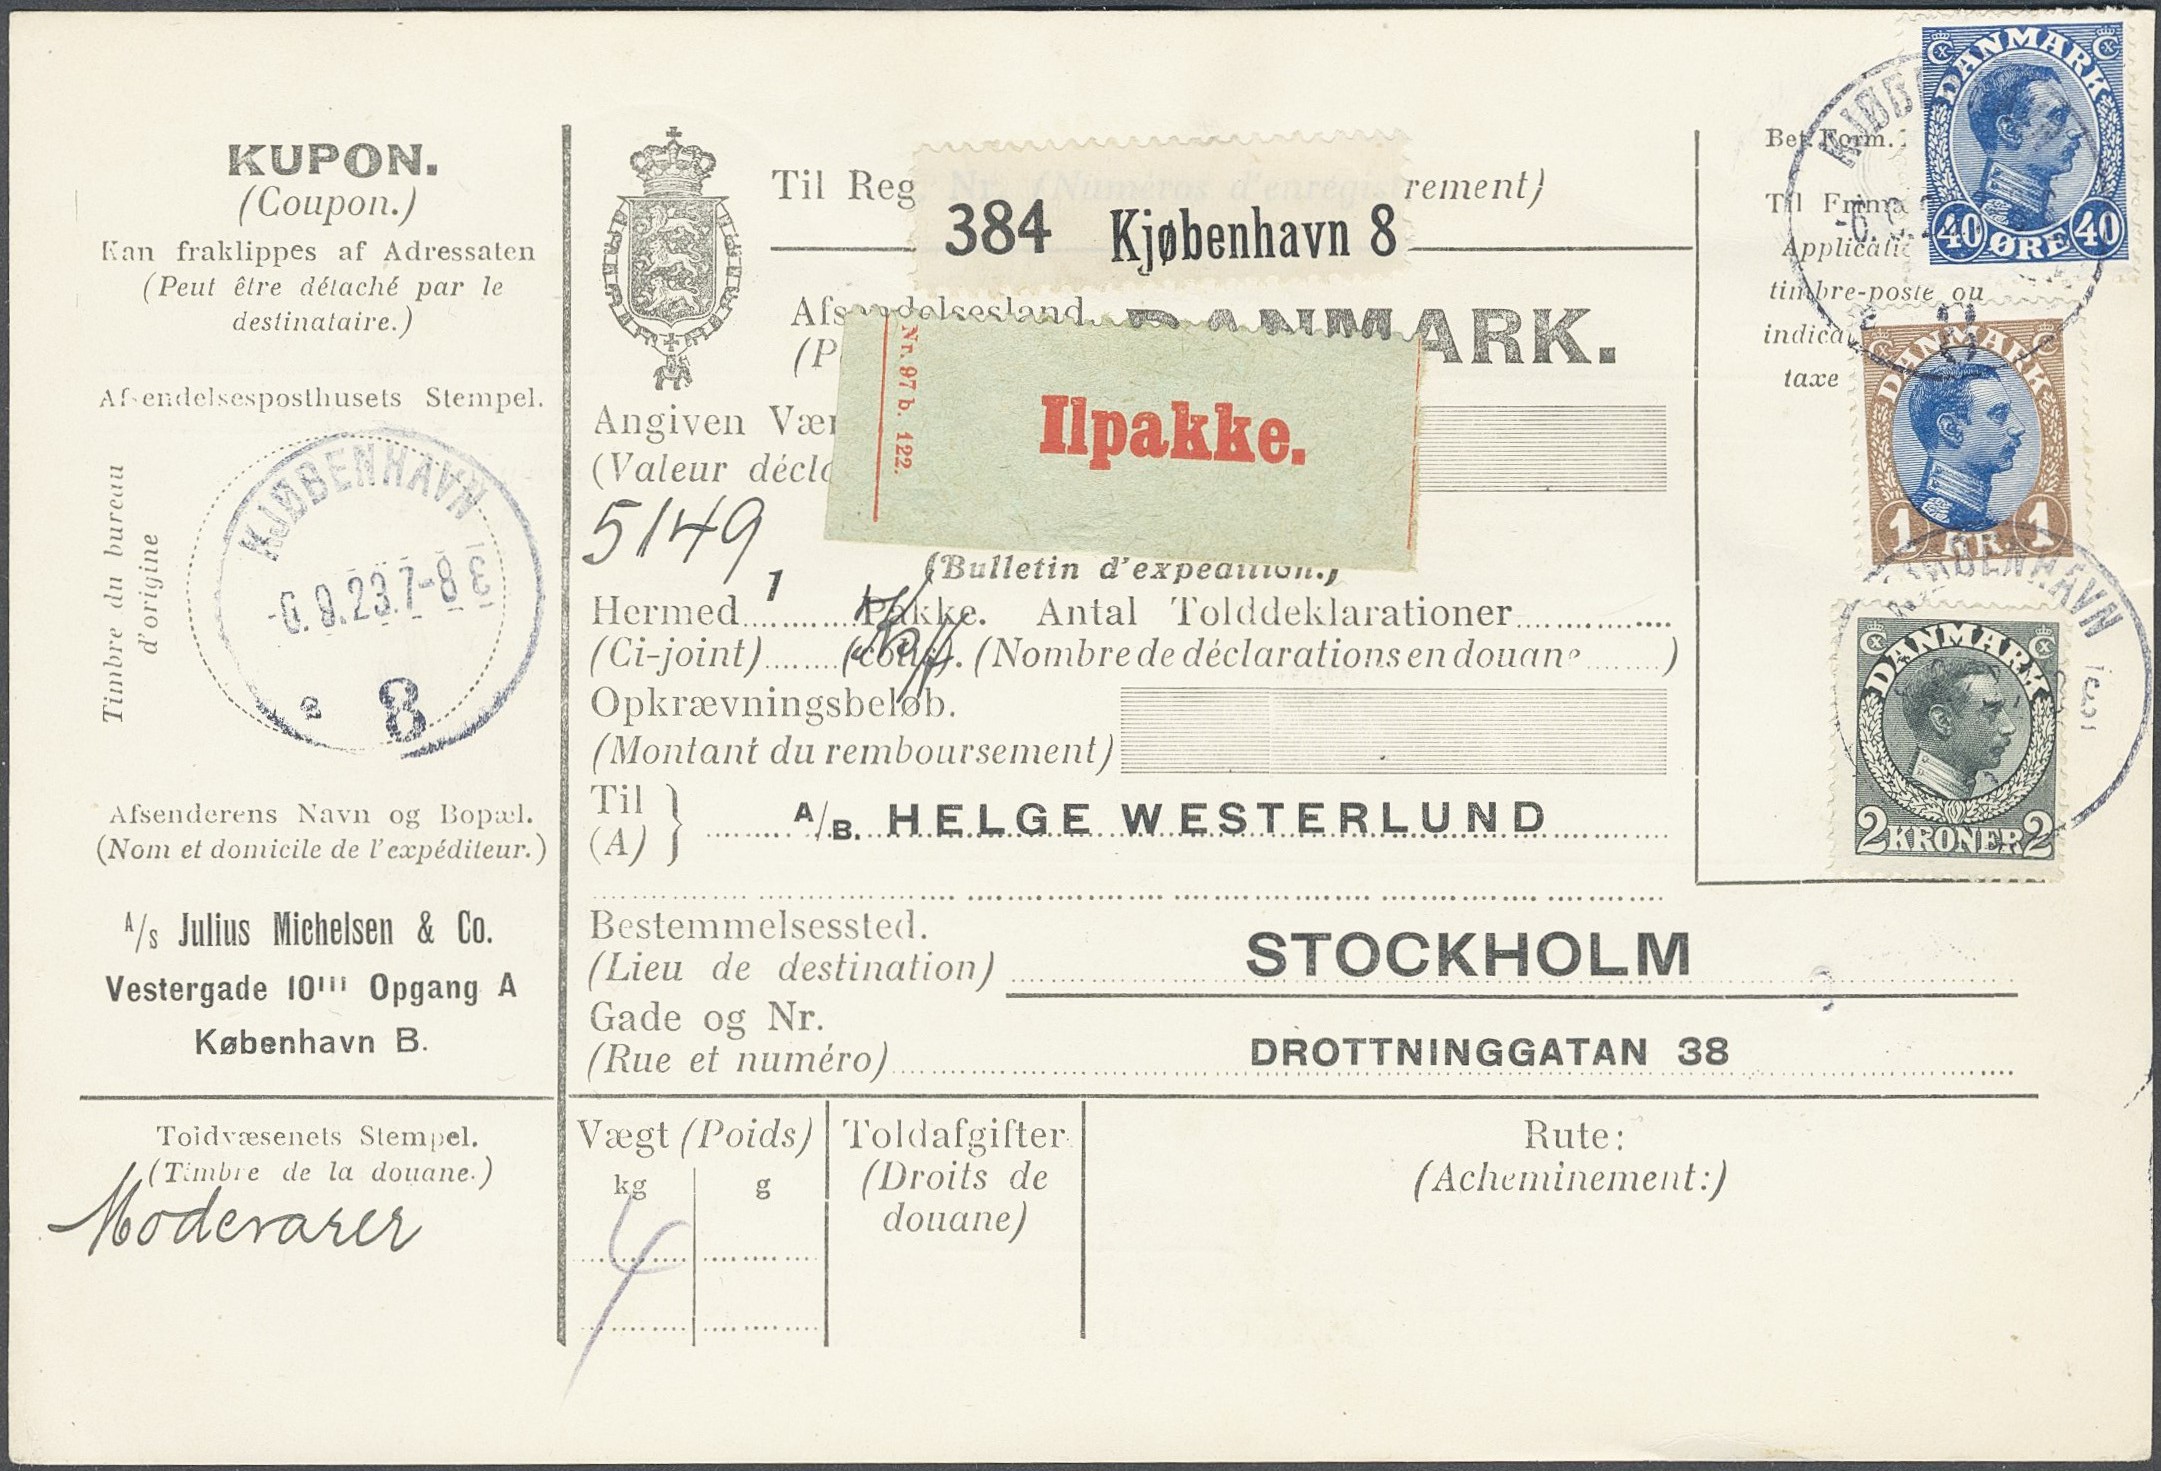 KUPON.
(Coupon.)
Kan fraklippes af Adressaten
(Peut être détaché par le
destinataire.)
Afsendelsesposthusets Stempel.
Timbre du bureau
d'origine
KJØBENHAVN
-6.9.23.7-8 E
8
Afsenderens Navn og Bopæl.
(Nom et domicile de l'expéditeur.)
A/S Julius Michelsen & Co.
Vestergade 10III Opgang A
København B.
Toldvæsenets Stempel.
(Timbre de la douane.)
Modevarer
Til Reg. Nr. (Numéros d'enregistrement)
384 Kjøbenhavn 8
Afsendelsesland
DANMARK.
(P
Nr. 97 b. 122.
Ilpakke.
Angiven Vær
(Valeur décla
5149
(Bulletin d'expédition.)
Hermed 1 Pakke. Antal Tolddeklarationer
(Ci-joint) (colis). (Nombre de déclarations en douane )
Opkrævningsbeløb.
(Montant du remboursement)
Til
(A)
A/B. HELGE WESTERLUND
Bestemmelsessted.
(Lieu de destination)
STOCKHOLM
Gade og Nr.
(Rue et numéro)
DROTTNINGGATAN 38
Vægt (Poids)
kg g
4
Toldafgifter
(Droits de
douane)
Rute:
(Acheminement:)
Bet. Form.
Til Frima
Applicatio
timbre-poste ou
indica
taxe
DANMARK
40 ØRE 40
DANMARK
1 KR. 1
KJØBENHAVN
DANMARK
2 KRONER 2